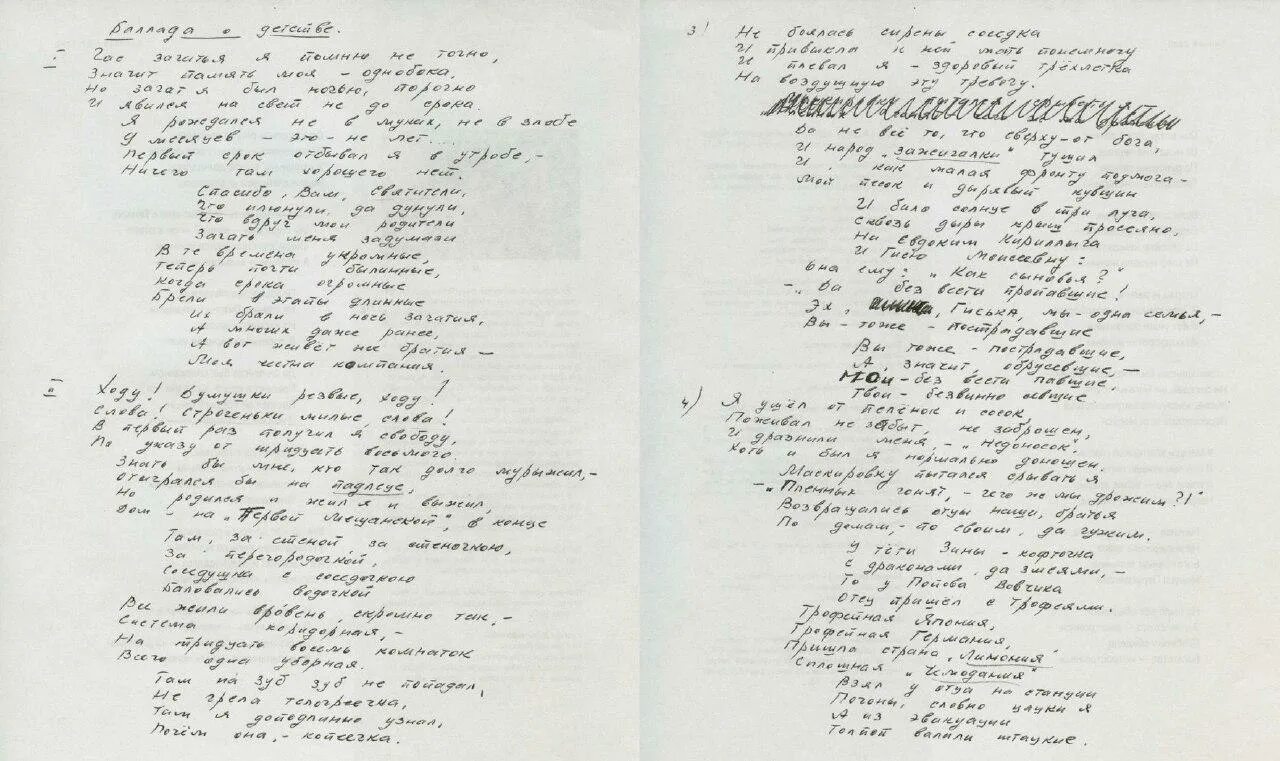 Баллада о детстве.
I
Час зачатья я помню не точно,
Значит память моя - однобока,
Но зачат я был ночью, порочно
И явился на свет не до срока.
Я рождался не в муках, не в злобе
9 месяцев - это - не лет...
Первый срок отбывал я в утробе, -
Ничего там хорошего нет.
Спасибо Вам, святители,
Что плюнули, да дунули,
Что вдруг мои родители
Зачать меня задумали
В те времена укромные,
Теперь почти былинные,
Когда срока огромные
Брели в этапы длинные
Их брали в ночь зачатия,
А многих даже ранее,
А вот живёт же братия -
Моя честна компания.
II
Ходу! Думушки резвые, ходу!
Слова! Строченьки милые, слова!
В первый раз получил я свободу,
По указу от тридцать восьмого.
Знать бы мне, кто так долго мурыжил, -
Отыгрался бы на подлеце,
Но родился и жил я и выжил,
Дом - на "Первой Мещанской", в конце
Там, за стеной за стеночкою,
За перегородочкой,
Соседушка с соседочкою
Баловались водочкой
Все жили вровень, скромно так, -
Система коридорная, -
На тридцать восемь комнаток
Всего одна уборная.
Там на зуб зуб не попадал,
Не грела телогреечка,
Там я доподлинно узнал,
Почём она, - копеечка.
3)
Не боялась сирены соседка
И привыкла к ней мать понемногу
И плевал я - здоровый трёхлетка
На воздушную эту тревогу.
Да не всё то, что сверху - от бога,
И народ "зажигалки" тушил
И, как малая фронту подмога -
Мой песок и дырявый кувшин
И било солнце в три луча,
Сквозь дыры крыш просеяно,
На Евдоким Кириллыча
И Гисю Моисеевну:
Она ему: "Как сыновья?"
- "Да без вести пропавшие!
Эх, Гиська, мы - одна семья, -
Вы - тоже - пострадавшие
Вы тоже - пострадавшие,
А, значит, обрусевшие, -
Мои - без вести павшие,
Твои - безвинно севшие
4)
Я ушёл от пелёнок и сосок,
Поживал не забыт, не заброшен,
И дразнили меня, - "Недоносок",
Хоть и был я нормально доношен.
Маскировку пытался срывать я
- "Пленных гонят, - чего же мы дрожим?!"
Возвращались отцы наши, братья
По домам, - по своим, да чужим.
У тёти Зины - кофточка
с драконами, да змеями, -
То у Попова Вовчика
Отец пришёл с трофеями.
Трофейная Япония,
Трофейная Германия,
Пришла страна "Лимония"
Сплошная "Чемодания"
Взял у отца на станции
Погоны, словно цацки я
А из эвакуации
Толпой валили штацкие.